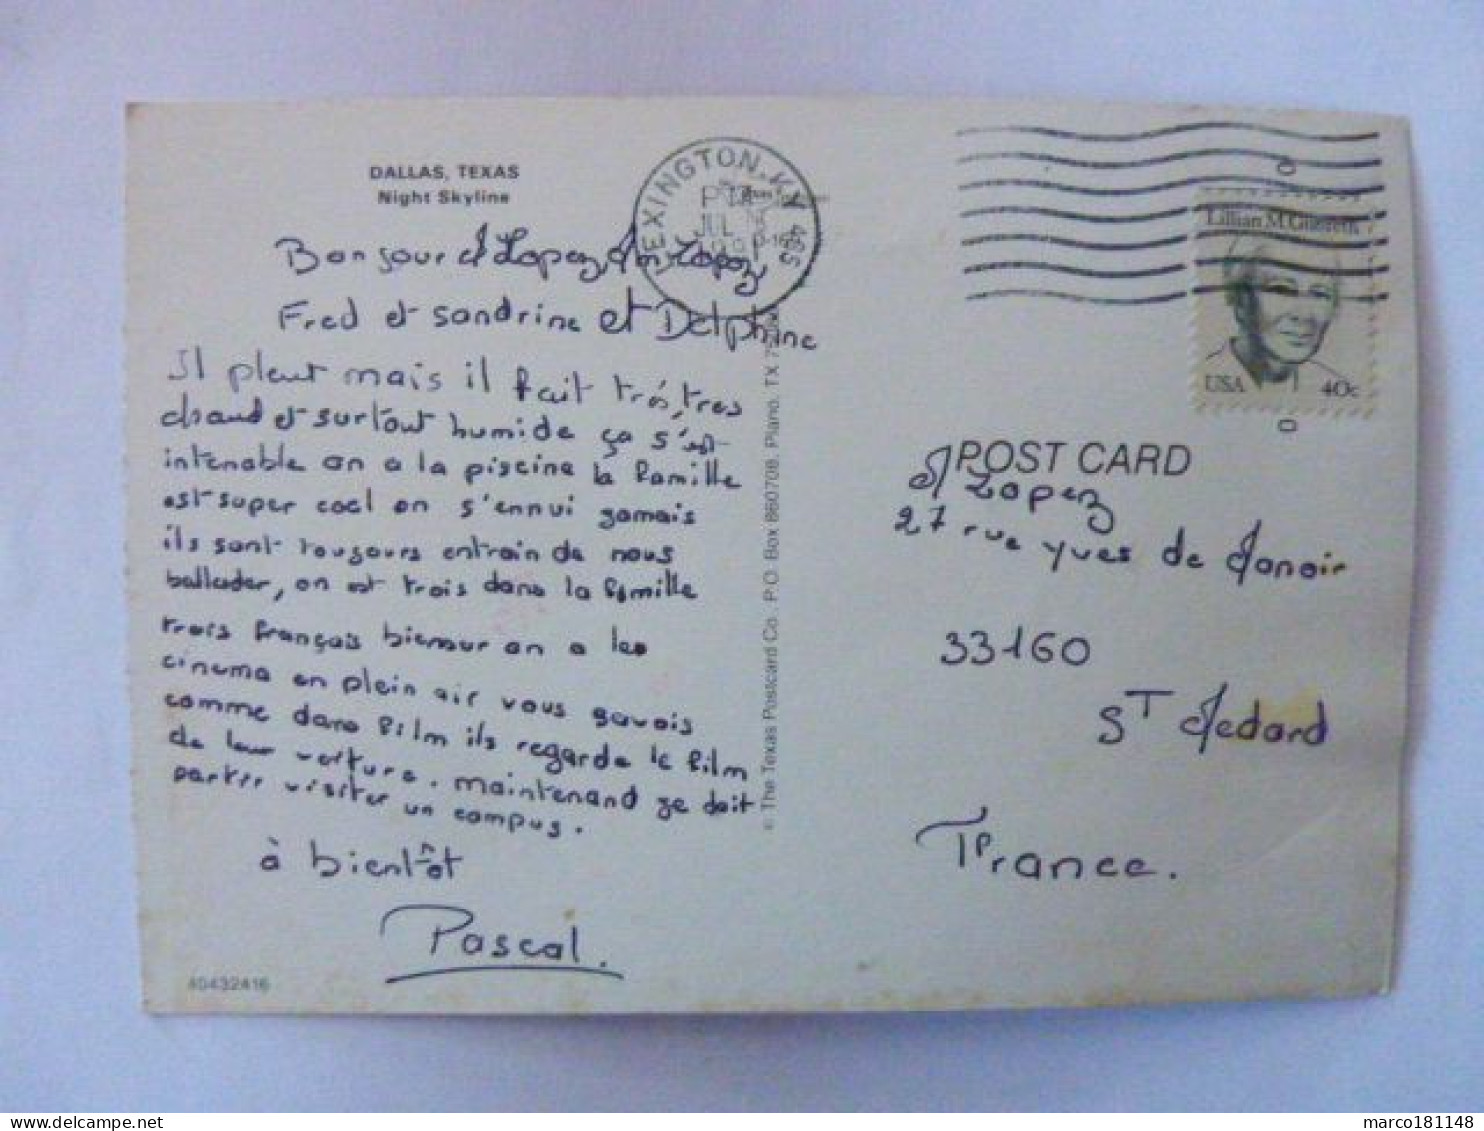 DALLAS, TEXAS
Night Skyline
LEXINGTON, KY 405
PM
JUL
Lillian M. Gilbreth
USA 40c
Bonjour M Lopez, Mm Lopez
Fred et sandrine et Delphine
Il pleut mais il fait très, tres
chaud et surtout humide ça s'est
intenable on a la piscine la famille
est super cool on s'ennui jamais
ils sont toujours entrain de nous
ballader, on est trois dans la famille
trois français biensur on a les
cinema en plein air vous savois
comme dans film ils regarde le film
de leur voiture. maintenand je doit
partir visiter un campus.
à bientôt
Pascal.
40432416
© The Texas Postcard Co. P.O. Box 860708, Plano, TX
POST CARD
M Lopez
27 rue yves de Manoir
33160
ST Medard
France.
marco181148